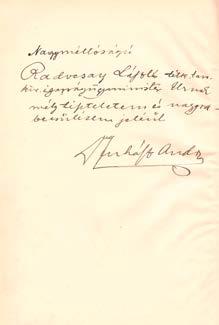 Nagyméltóságú
Radocsay László titk. tan.
kir. igazságügyminister Urnak
mély tiszteletem és nagyra-
becsülésem jeléül
Andor